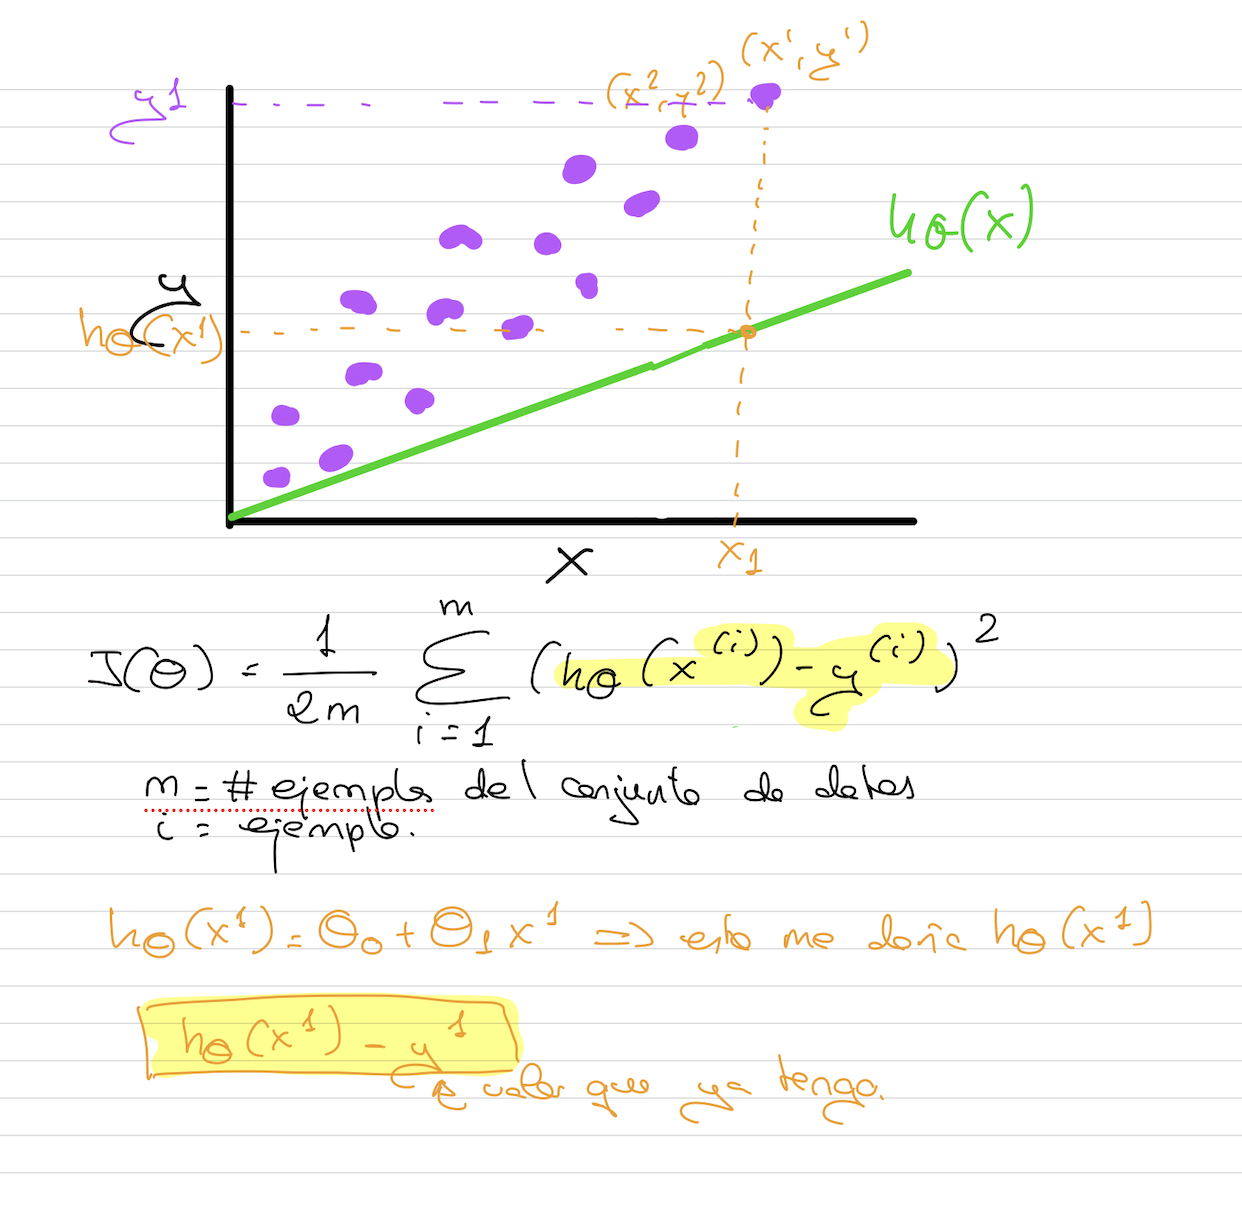 (x¹, y¹)
(x², y²)
y1
hθ(x)
y
hθ(x¹)
x
x₁
J(θ) = 1/2m Σ_{i=1}^{m} (hθ(x^(i)) - y^(i))²
m = # ejemplos del conjunto de datos
i = ejemplo.
hθ(x¹) = θ₀ + θ₁x¹ => esto me daría hθ(x¹)
hθ(x¹) - y¹
valor que ya tengo.